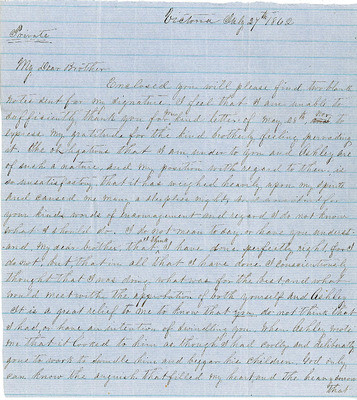 Victoria July 27th 1862
Private
My Dear Brother
Enclosed you will please find two blank
notes sent for my signature. I feel that I am unable to
sufficiently thank you for your kind letter of May 20th to
express my gratitude for the kind brotherly feeling pervading
it. The obligations that I am under to you and Ashley are
of such a nature, and my position with regard to them, is
so unsatisfactory, that it has weighed heavily upon my spirits
and caused me many a sleepless night,
your kind words of encouragement and regard I do not know
what I should do. I do not mean to say, or have you underst-
and, my dear brother, that I think I have done perfectly right for I
do not, but, that in all that I have done I conscientiously
thought that I was doing what was for the best, and what
would meet with the approbation of both yourself and Ashley
It is a great relief to me to know that you do not think that
I had, or have an intention of swindling you. When Ashley wrote
me that it looked to him as though I had coolly and deliberately
gone to work to swindle him and beggar his children, God only
can know the anguish that filled my heart, and the heavy
that